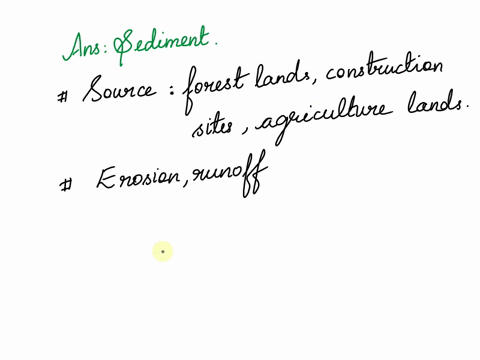 Ans: Sediment.
# Source : forest lands, construction
sites, agriculture lands.
# Erosion, runoff